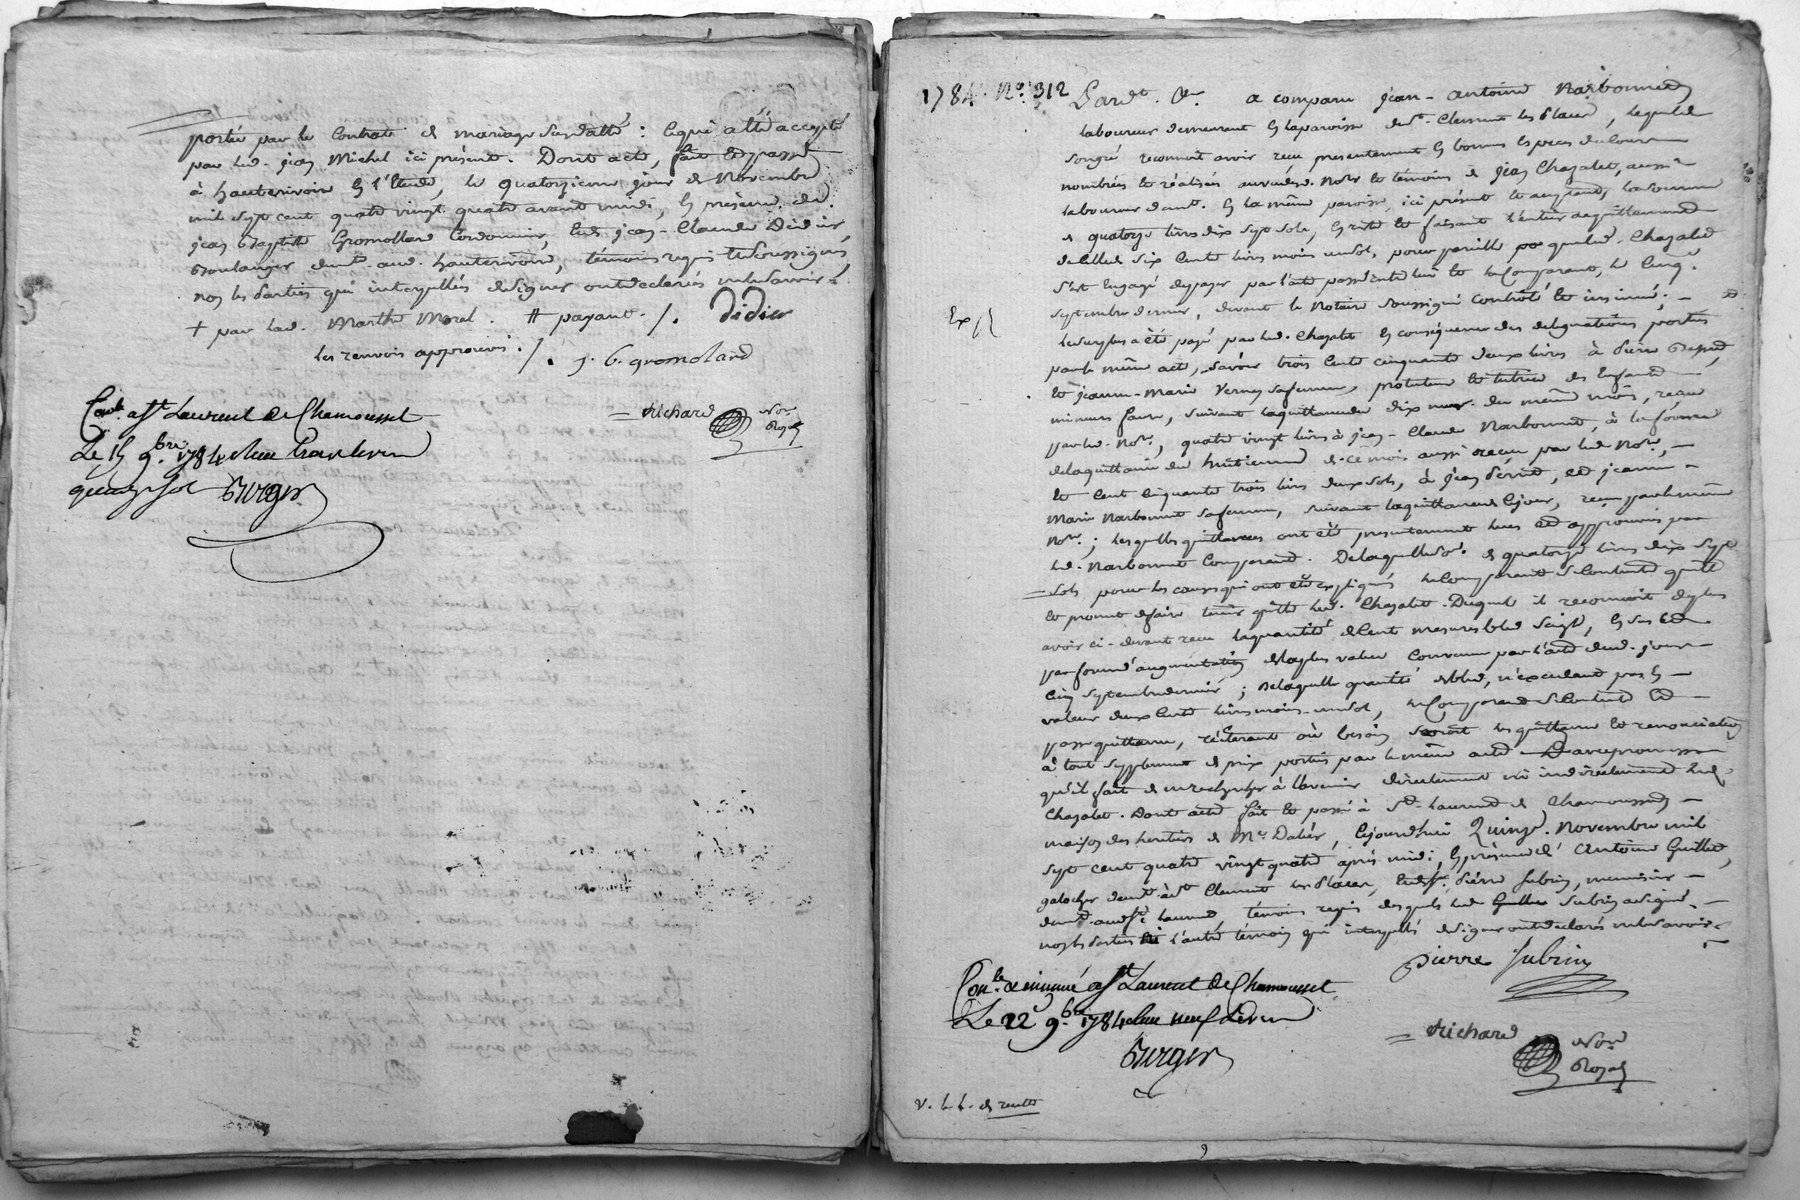 portée par le Contrat de mariage susdatté : Ce qui a été accepté
par led. jean Michel ici présent. Dont acte, fait et passé
à hauterivoire en l'Etude, le quatorzieme jour de Novembre
mil sept cent quatre vingt quatre avant midi, en présence de
jean Baptiste Gromollard Cordonnier, et de jean-Claude Didier,
Boulanger demt. aud. hauterivoire, témoins requis et soussignés,
non les parties qui interpellées de signer ont déclaré ne le savoir./.
+ par lad. Marthe Moral. # payant./. Didier
les renvois approuvés./. j. b. gromolard
= Richard Nore. Royal
Conlé. à St. Laurent de Chamousset
Le 15 9.bre 1784 Reçu
quinze sols Burger
1784. No. 312 Pardt. &a. a comparu jean-antoine Narbonnet
laboureur demeurant en la paroisse de St. Clement les places, lequel de
son gré reconnoit avoir reçu presentement en bonnes especes de cours
nombrées et réalisées au vu desd. Nore. et témoins de jean Chazalet, aussi
laboureur demt. en la même paroisse, ici présent et acceptant, la somme
de quatorze livres dix sept sols, en reste et faisant l'entier acquittement
de celle de six cents livres moins un sol, pour pareille que led. Chazalet
s'est engagé de payer par l'acte passé entre lui et le Comparant, le cinq
Exp.
septembre dernier, devant le Notaire soussigné Contrôlé et insinué ; -
le surplus a été payé par led. Chazalet en conséquence des délegations portées
par le même acte, savoir trois cents cinquante deux livres à Pierre
et jeanne-Marie Vernay sa femme, protuteur et tutrice des Enfants
mineurs faure, suivant la quittance du dix neuf du même mois, reçue
par led. Nore., quatre vingt livres à jean-Claude Narbonnet, à la forme
de la quittance du huitieme de ce mois aussi reçue par led. Nore., -
et cent cinquante trois livres deux sols, à jean et jeanne-
Marie Narbonnet sa femme, suivant la quittance de ce jour, reçue par le même
Nore. ; lesquelles quittances ont été presentement lues et approuvées par
led. Narbonnet Comparant. De laquelle so.e de quatorze livres dix sept
= sols pour les causes qui ont été expliquées le Comparant se Contente quitte
et promet de faire tenir quitte led. Chazalet. Duquel il reconnoit de plus
avoir ci-devant reçu la quantité de cent mesures bled seigle, en sus et
par forme d'augmentation de la plus value Convenue par l'acte dud. jour
cinq septembre dernier ; de laquelle quantité de bled, n'excedant pas en -
valeur deux cents livres moins un sol, le Comparant se Contente et -
passe quittance, réiterant où besoin seroit les quittance et renonciation
à tout supplement de prix portées par le même acte
qu'il fait de ne rechercher à l'avenir directement ni indirectement led.
Chazalet. Dont acte fait et passé à St. Laurent de Chamousset -
maison des heritiers de Me. Dalier, ce jourd'hui Quinze. Novembre mil
sept cent quatre vingt quatre après midi, en présence d'Antoine Guillet,
galocher demt. à St. Clement les places, et de Sr. Pierre Subrin, menuisier -
demt. aud. St. Laurent, témoins requis desquels led. Subrin a signé, -
non les parties ni l'autre témoin qui interpellés de signer ont déclaré ne le savoir.
pierre Subrin
Conlé. & insinué à St. Laurent de Chamousset
Le 22 9.bre 1784 Reçu neuf livres
Burger
= Richard Nore. Royal